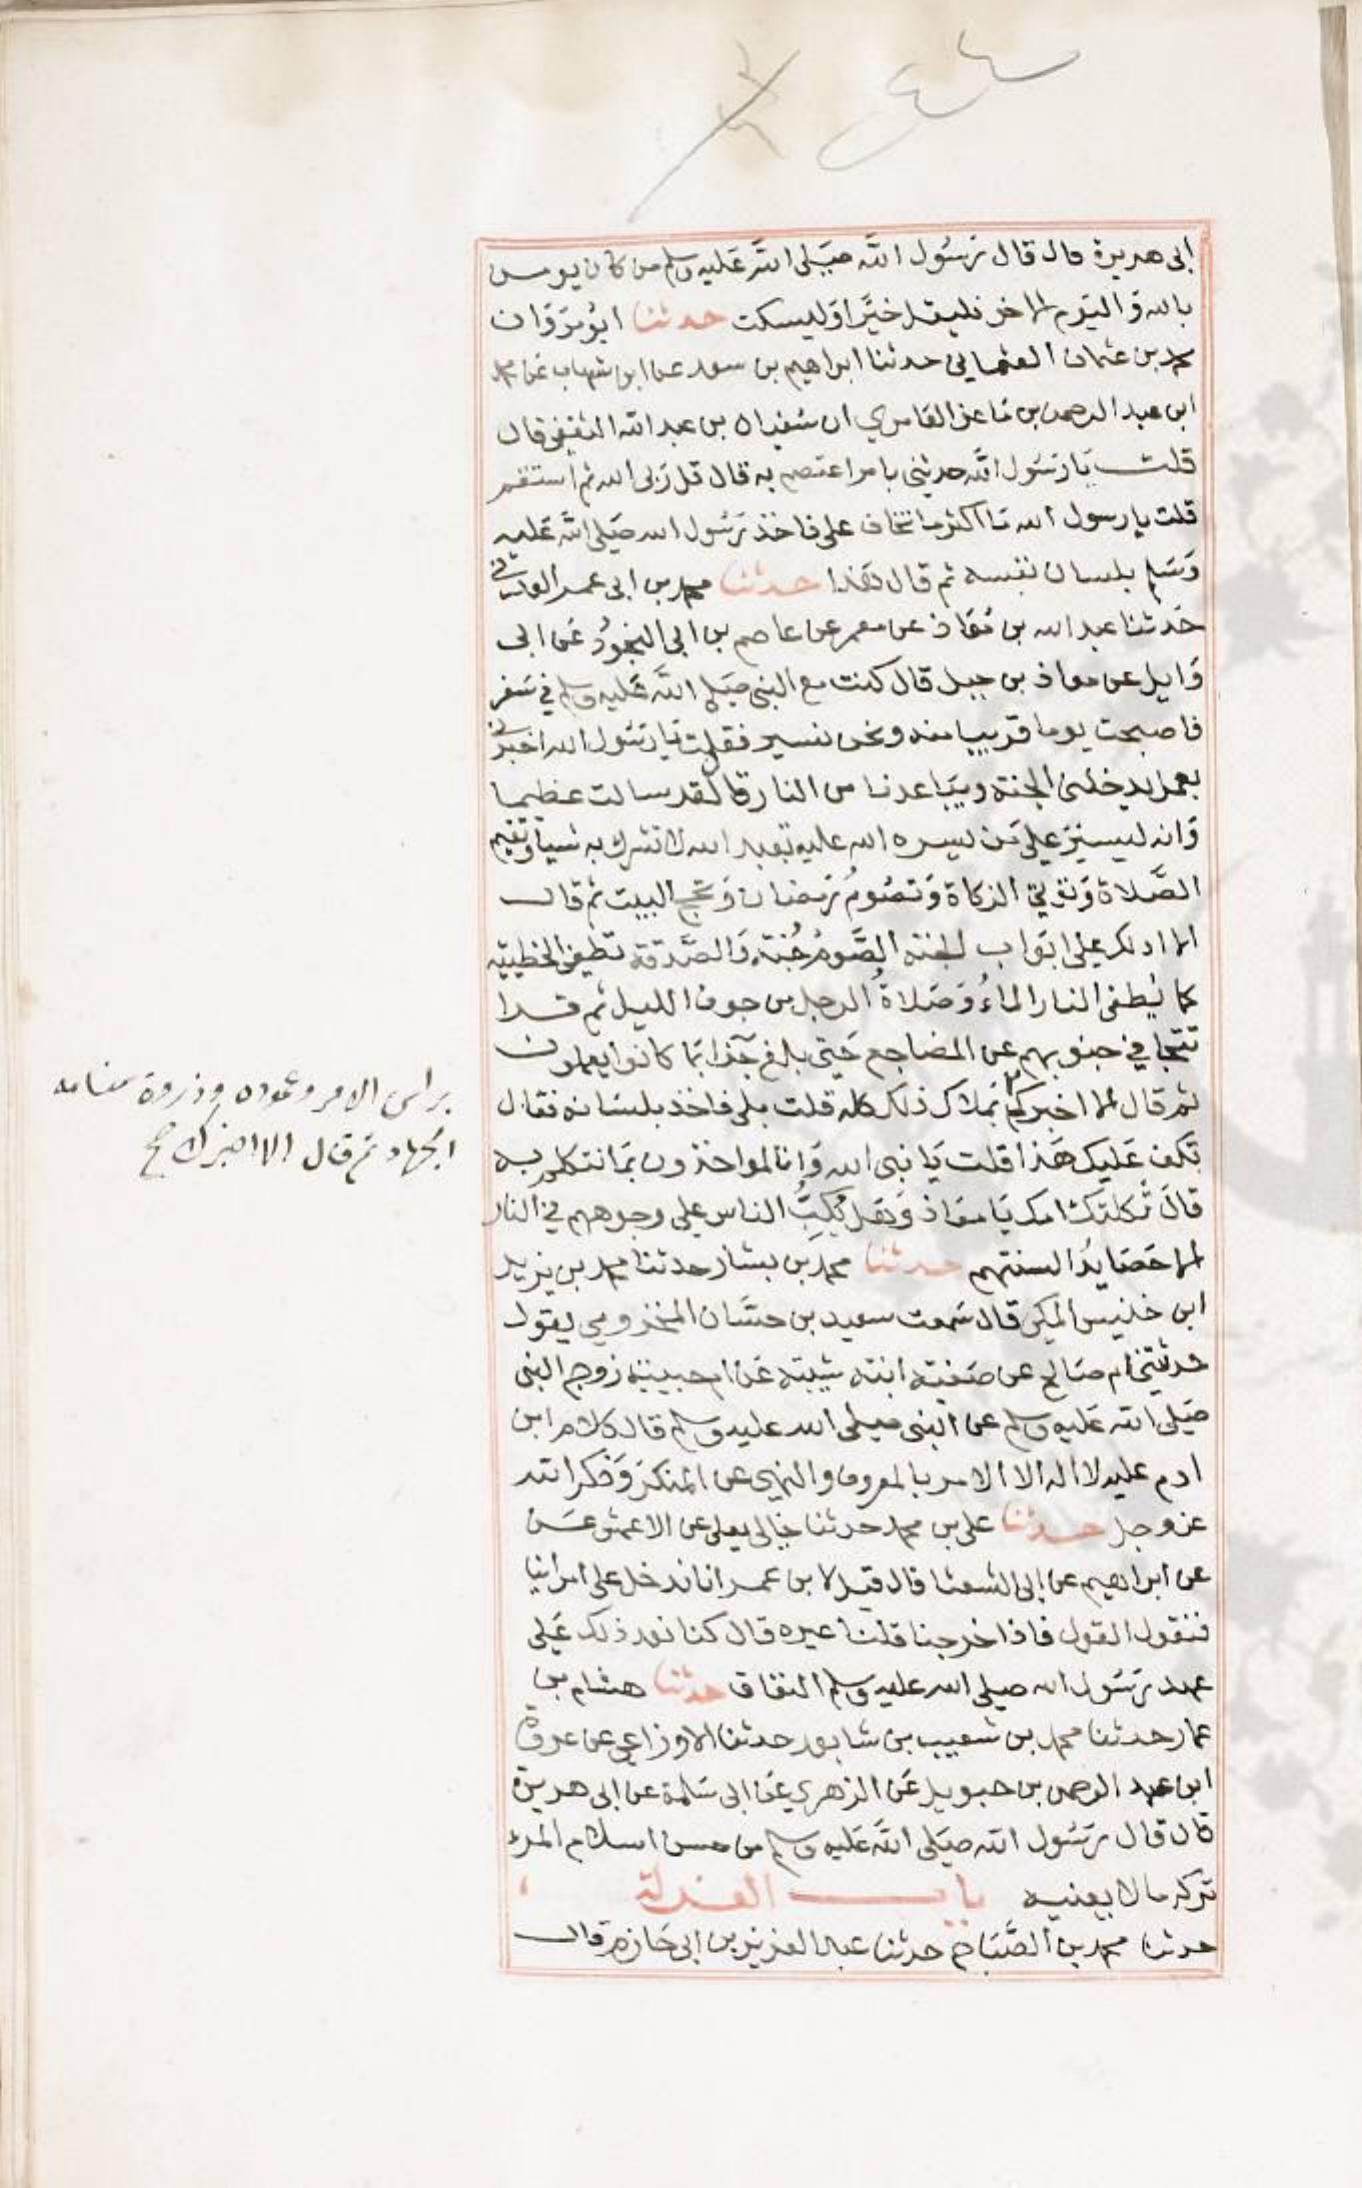 ابى هريرة قال قال رَسُول الله صَلى الله عَليه وسلم من كان يومن
بالله وَاليَوم الاخر فليقل خيَرًا اوليسكت حدثنا ابُو مَروَان
محمد بن عثمان العثمانى حدثنا ابراهيم بن سعد عن ابن شهاب عَن محمد
ابن عبد الرحمن بن مَاعز العَامري ان سُفيان بن عبد الله الثقفى قال
قلت يَا رَسُول الله حدثنى بامر اعتصم به قال قل رَبى الله ثم استقم
قلت يا رسول الله مَا اكثر ما تخاف على فاخذ رَسُول الله صَلى الله عَليه
وَسَلم بلسان نفسه ثم قال هَذا حدثنا محمد بن ابى عمر العدنى
حَدثنا عبد الله بن مُعَاذ عن معمر عن عاصم بن ابى النجُودُ عَن ابى
وَايل عن معاذ بن جبل قال كنت مع النبى صَلى الله عَليه وسلم في سَفر
فاصبحت يوما قريبا منه ونحن نسير فقلت يَا رَسُول الله اخبرنى
بعمل يدخلنى الجنة ويبَاعدنا من النار قال لقد سالت عظيما
وَانه ليسير عَلى مَن يسره الله عليه تعبد الله لا تشرك به شيا وَتقيم
الصَّلاة وَتؤتي الزكاة وَتصُومُ رَمضان وَتحج البيت ثم قال
الا ادلك على ابوَاب الجنة الصَّومُ جُنة وَالصَّدقة تطفى الخطيئة
كما يُطفى النار الماءُ وَصَلاةُ الرجل من جوف الليل ثم قرا
تتجافي جنوبهم عن المضاجع حَتى بلغ جَزا بمَا كانوا يعملون
ثم قال الا اخبركم بمَلاك ذلك كله قلت بلى فاخذ بلسَانه فقال
تكف عَليك هَذا قلت يَا نبى الله وَانا لمواخذون بمَا نتكلم به
قالَ ثَكلتكَ امك يَا معَاذ وَهَل يُكبُّ الناس على وجوههم في النار
الا حَصَايدُ السنتهم حدثنا محمد بن بشار حدثنا محمد بن يزيد
ابن خنيس المكى قال سَمعت سعيد بن حسَّان المخزومي يقول
حدثتنى ام صَالح عن صَفية ابنة شيبة عَن ام حبيبة زوج النبى
صَلى الله عَليه وسلم عن النبى صلى الله عليه وسلم قال كلام ابن
ادم عليه لا اله الا الامر بالمعروف والنهي عن المنكر وَذكر الله
عز وجل حدثنا على بن محمد حدثنا خالى يعلى عن الاعمش عَن
عن ابراهيم عن ابى الشعثا قال قيل لابن عمر انا ندخل على امرائنا
فنقول القول فاذا خرجنا قلنا غيره قال كنا نعد ذلك عَلى
عهد رَسُول الله صلى الله عليه وسلم النفاق حدثنا هشام بن
عمار حدثنا محمد بن شعيب بن شابور حدثنا الاوزاعى عن عروة
ابن عبد الرحمن بن حيويل عَن الزهري عَن ابى سَلمة عن ابى هريرة
قال قال رَسُول الله صَلى الله عَليه وسلم من حسن اسلام المرء
تركه ما لا يعنيه باب العزلة
حدثنا محمد بن الصَّبَاح حدثنا عبد العزيز بن ابى حَازم قال
براس الامر وعموده وذروة سنامه
الجهاد ثم قال الا اخبرك صح